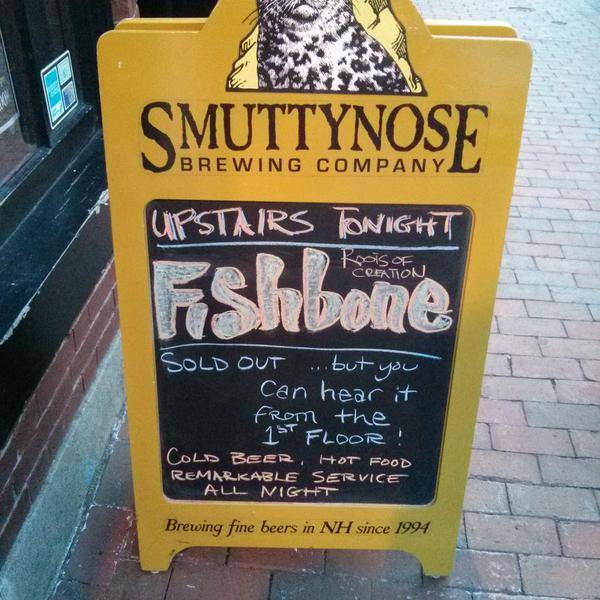 SMUTTYNOSE
BREWING COMPANY
UPSTAIRS TONIGHT
ROOTS OF
CREATION
Fishbone
SOLD OUT ...but you
can hear it
from the
1ST FLOOR!
COLD BEER, HOT FOOD
REMARKABLE SERVICE
ALL NIGHT
Brewing fine beers in NH since 1994